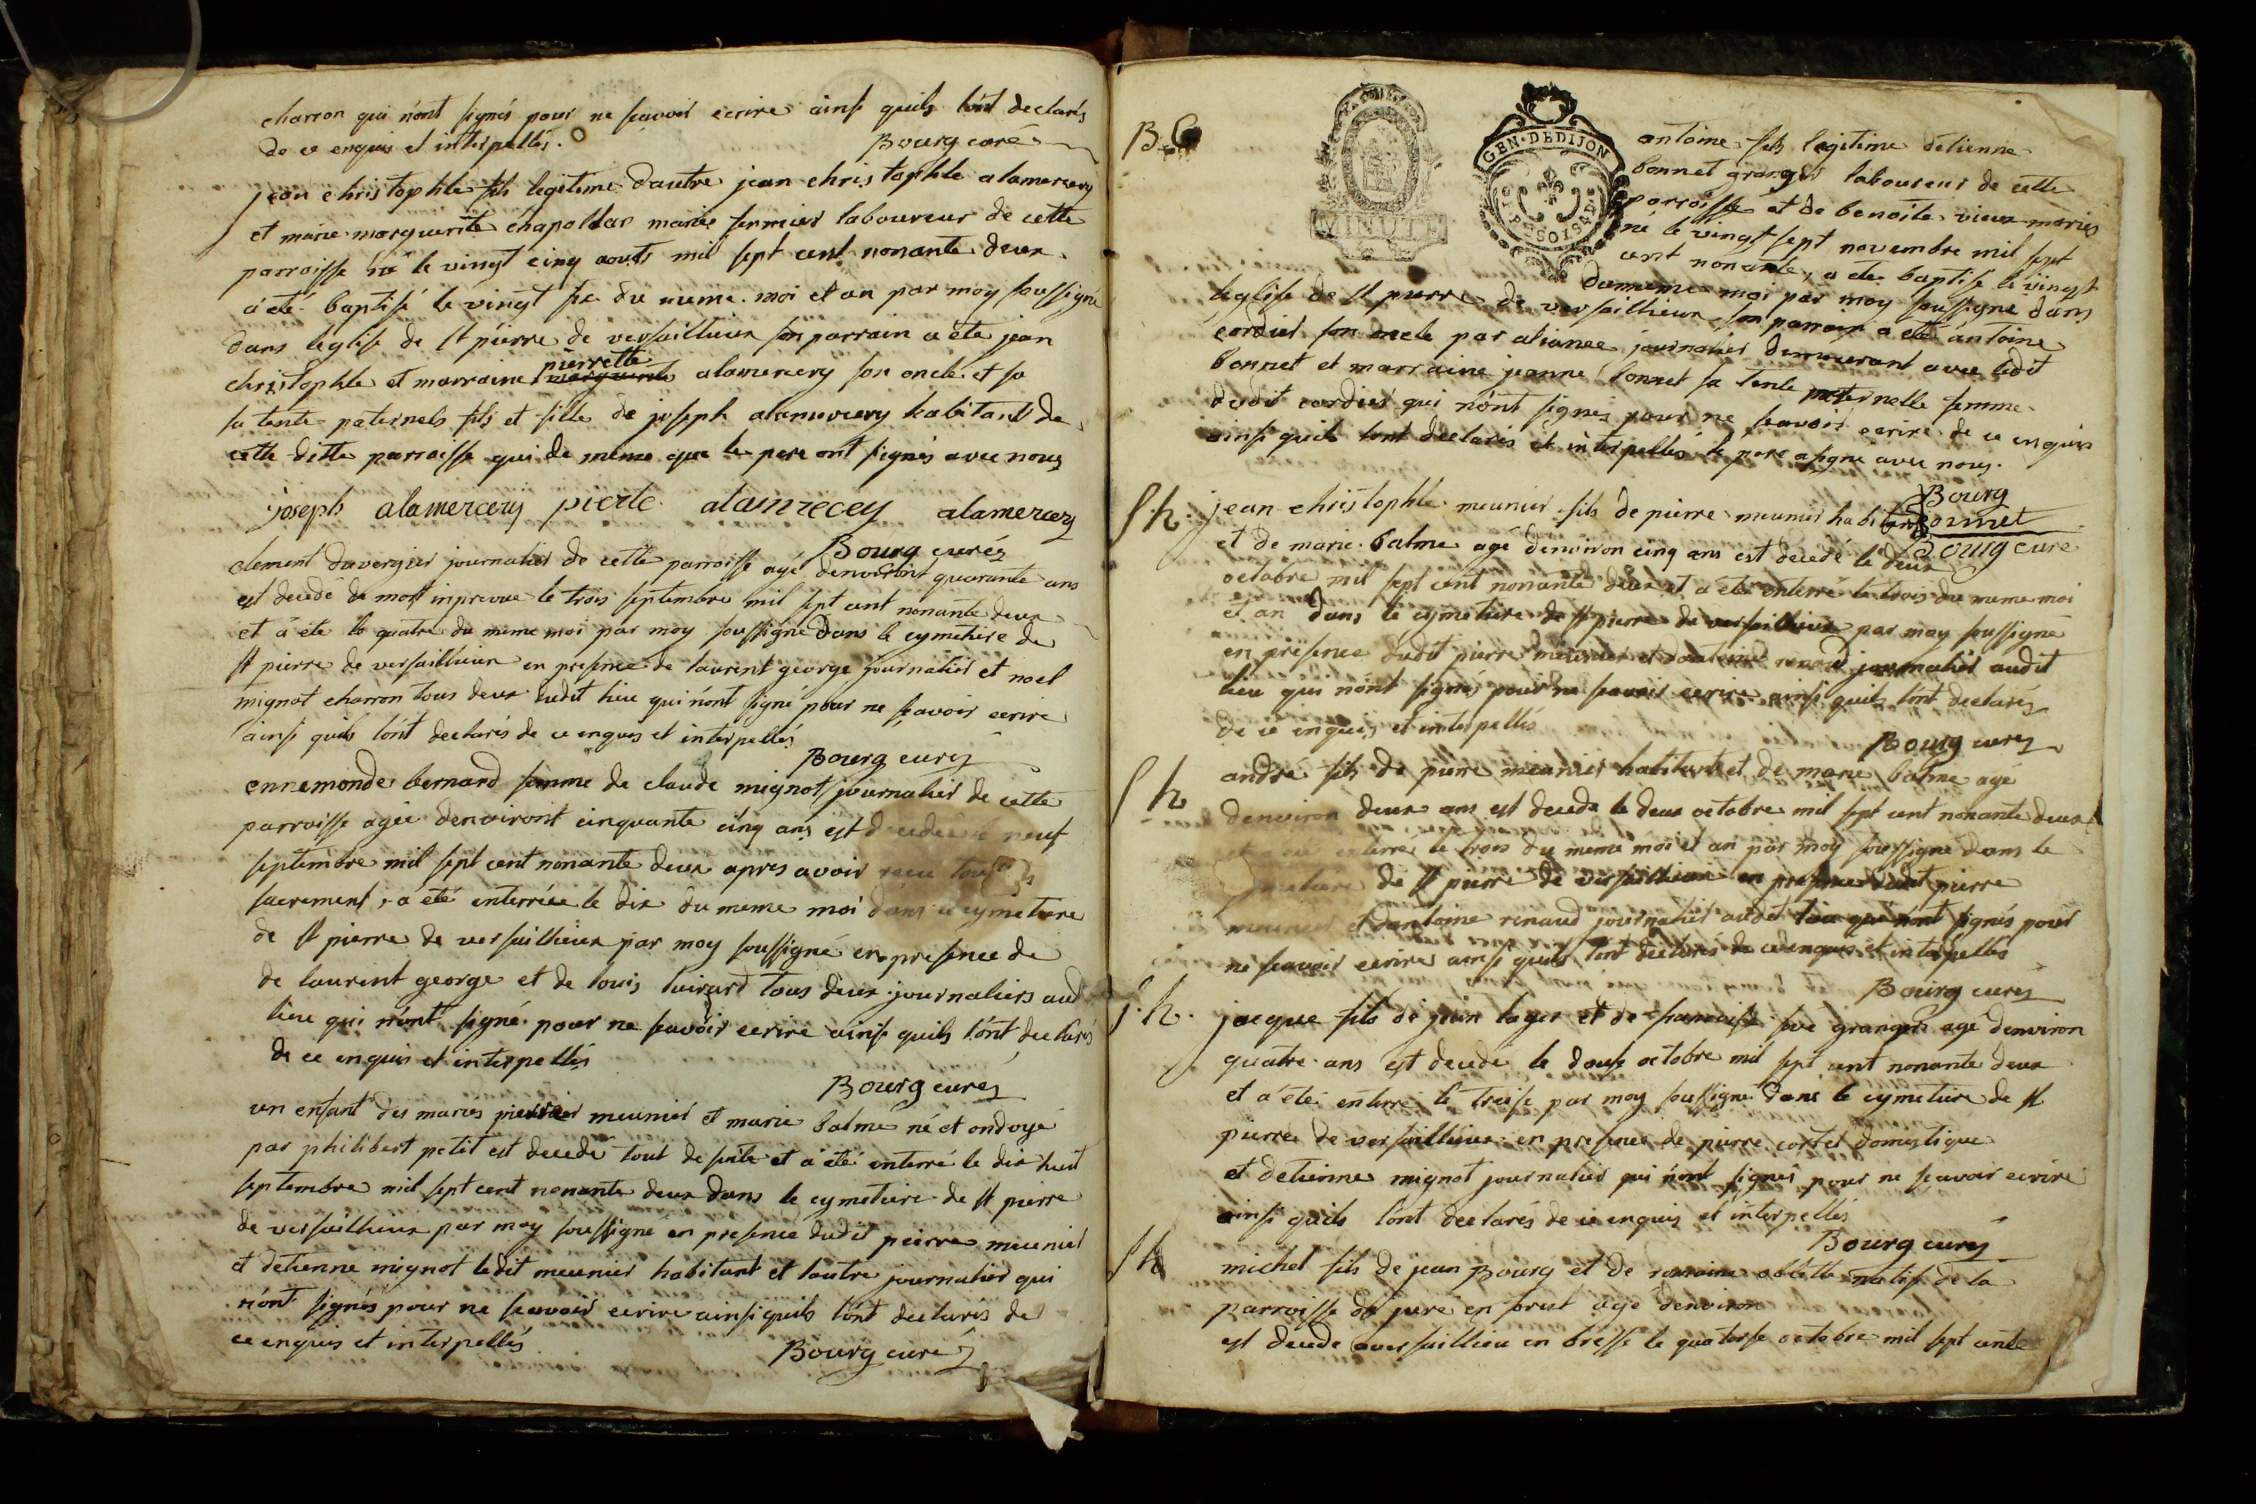 charron qui n'ont signés pour ne scavoir ecrire ainsi quils l'ont declarés
de ce enquis et interpellés.
Bourg curé
jean christophle fils legitime dautre jean christophle alamercery
et marie marguerite chapolldar mariés fermier laboureur de cette
parroisse né le vingt cinq aouts mil sept cent nonante deux
a été baptisé le vingt six du meme moi et an par moy soussigné
dans leglise de st pierre de versaillieux son parrain a été jean
pierrette
christophle et marraine marguerite alamercery son oncle et sa
sa tente paternels fils et fille de joseph alamercery habitant de
cette ditte parroisse qui de meme que le pere ont signés avec nous
joseph alamercery pierte alamrecey alamercery
Bourg curé
clement duvergier journalier de cette parroisse agé denviront quarante ans
est decedé de mort inprevue le trois septembre mil sept cent nonante deux
et a été le quatre du meme moi par moy soussigné dans le cymetiere de
st pierre de versaillieux en presence de laurent george journalier et noel
mignot charron tous deux dudit lieu qui n'ont signé pour ne scavoir ecrire
ainsi quils l'ont declarés de ce enquis et interpellés
Bourg curé
ennemonde bernard femme de claude mignot journalier de cette
parroisse agée denviront cinquante cinq ans est decedée le neuf
septembre mil sept cent nonante deux apres avoir recu tous
sacrement, a été enterrée le dix du meme moi dans le cymetiere
de st pierre de versaillieux par moy soussigné en presence de
de laurent george et de louis tuirard tous deux journaliers aud
lieu qui n'ont signé pour ne scavoir ecrire ainsi quils l'ont declarés
de ce enquis et interpellés
Bourg curé
un enfant des mariés pierre meunier et marie balme né et ondoyé
par philibert petit est decedé tout de suite et a été enterré le dix huit
septembre mil sept cent nonante deux dans le cymetiere de st pierre
de versaillieux par moy soussigné en presence dudit peirre meunier
et detienne mignot ledit meunier habitant et lautre journalier qui
n'ont signés pour ne scavoir ecrire ainsi quils l'ont declarés de
ce enquis et interpellés
Bourg curé
MINUTE
GEN. DE DIJON
B.
antoine fils legitime detienne
bonnet granger laboureur de cette
parroisse et de benoite vieux mariés
né le vingt sept novembre mil sept
cent nonante, a été baptisé le vingt
dumeme moi par moy soussigné dans
leglise de st pierre de versaillieux, son parrain a été antoine
cordier son oncle par aliance journalier demeurant avec ledit
bonnet et marraine jeanne bonnet sa tente paternelle femme
dudit cordier qui n'ont signés pour ne scavoir ecrire de ce enquis
ainsi quils l'ont declarés et interpellés le pere a signé avec nous.
Bourg
bonnet
Bourg curé
Sh. jean christophle meunier fils de pierre meunier habitant
et de marie balme agé denviron cinq ans est decedé le deux
octobre mil sept cent nonante deux et a été enterré le trois du meme moi
et an dans le cymetiere de st pierre de versaillieux par moy soussigné
en presence dudit pierre meunier et dantoine renaud journalier audit
lieu qui n'ont signés pour ne scavoir ecrire ainsi quils l'ont declarés
de ce enquis et interpellés
Bourg curé
Sh andré fils de pierre meunier habitant et de marie balme agé
denviron deux ans est decedé le deux octobre mil sept cent nonante deux
et enterré le trois du meme moi et an par moy soussigné dans le
cymetiere de st pierre de versaillieux en presence dudit pierre
meunier et dantoine renaud journalier audit lieu qui n'ont signés pour
ne scavoir ecrire ainsi quils l'ont declarés de ce enquis et interpellés
Bourg curé
Sh. jacque fils de jean loger et de francoise granger agé denviron
quatre ans est decedé le douse octobre mil sept cent nonante deux
et a été enterré le treise par moy soussigné dans le cymetiere de st
pierre de versaillieux en presence de pierre cortet domestique
et detienne mignot journalier qui n'ont signés pour ne scavoir ecrire
ainsi quils l'ont declarés de ce enquis et interpellés
Bourg curé
Sh michel fils de jean Bourg et de romaine natif de la
parroisse de jure en agé denviron
est decedé a versaillieu en bresse le quatorse octobre mil sept cent